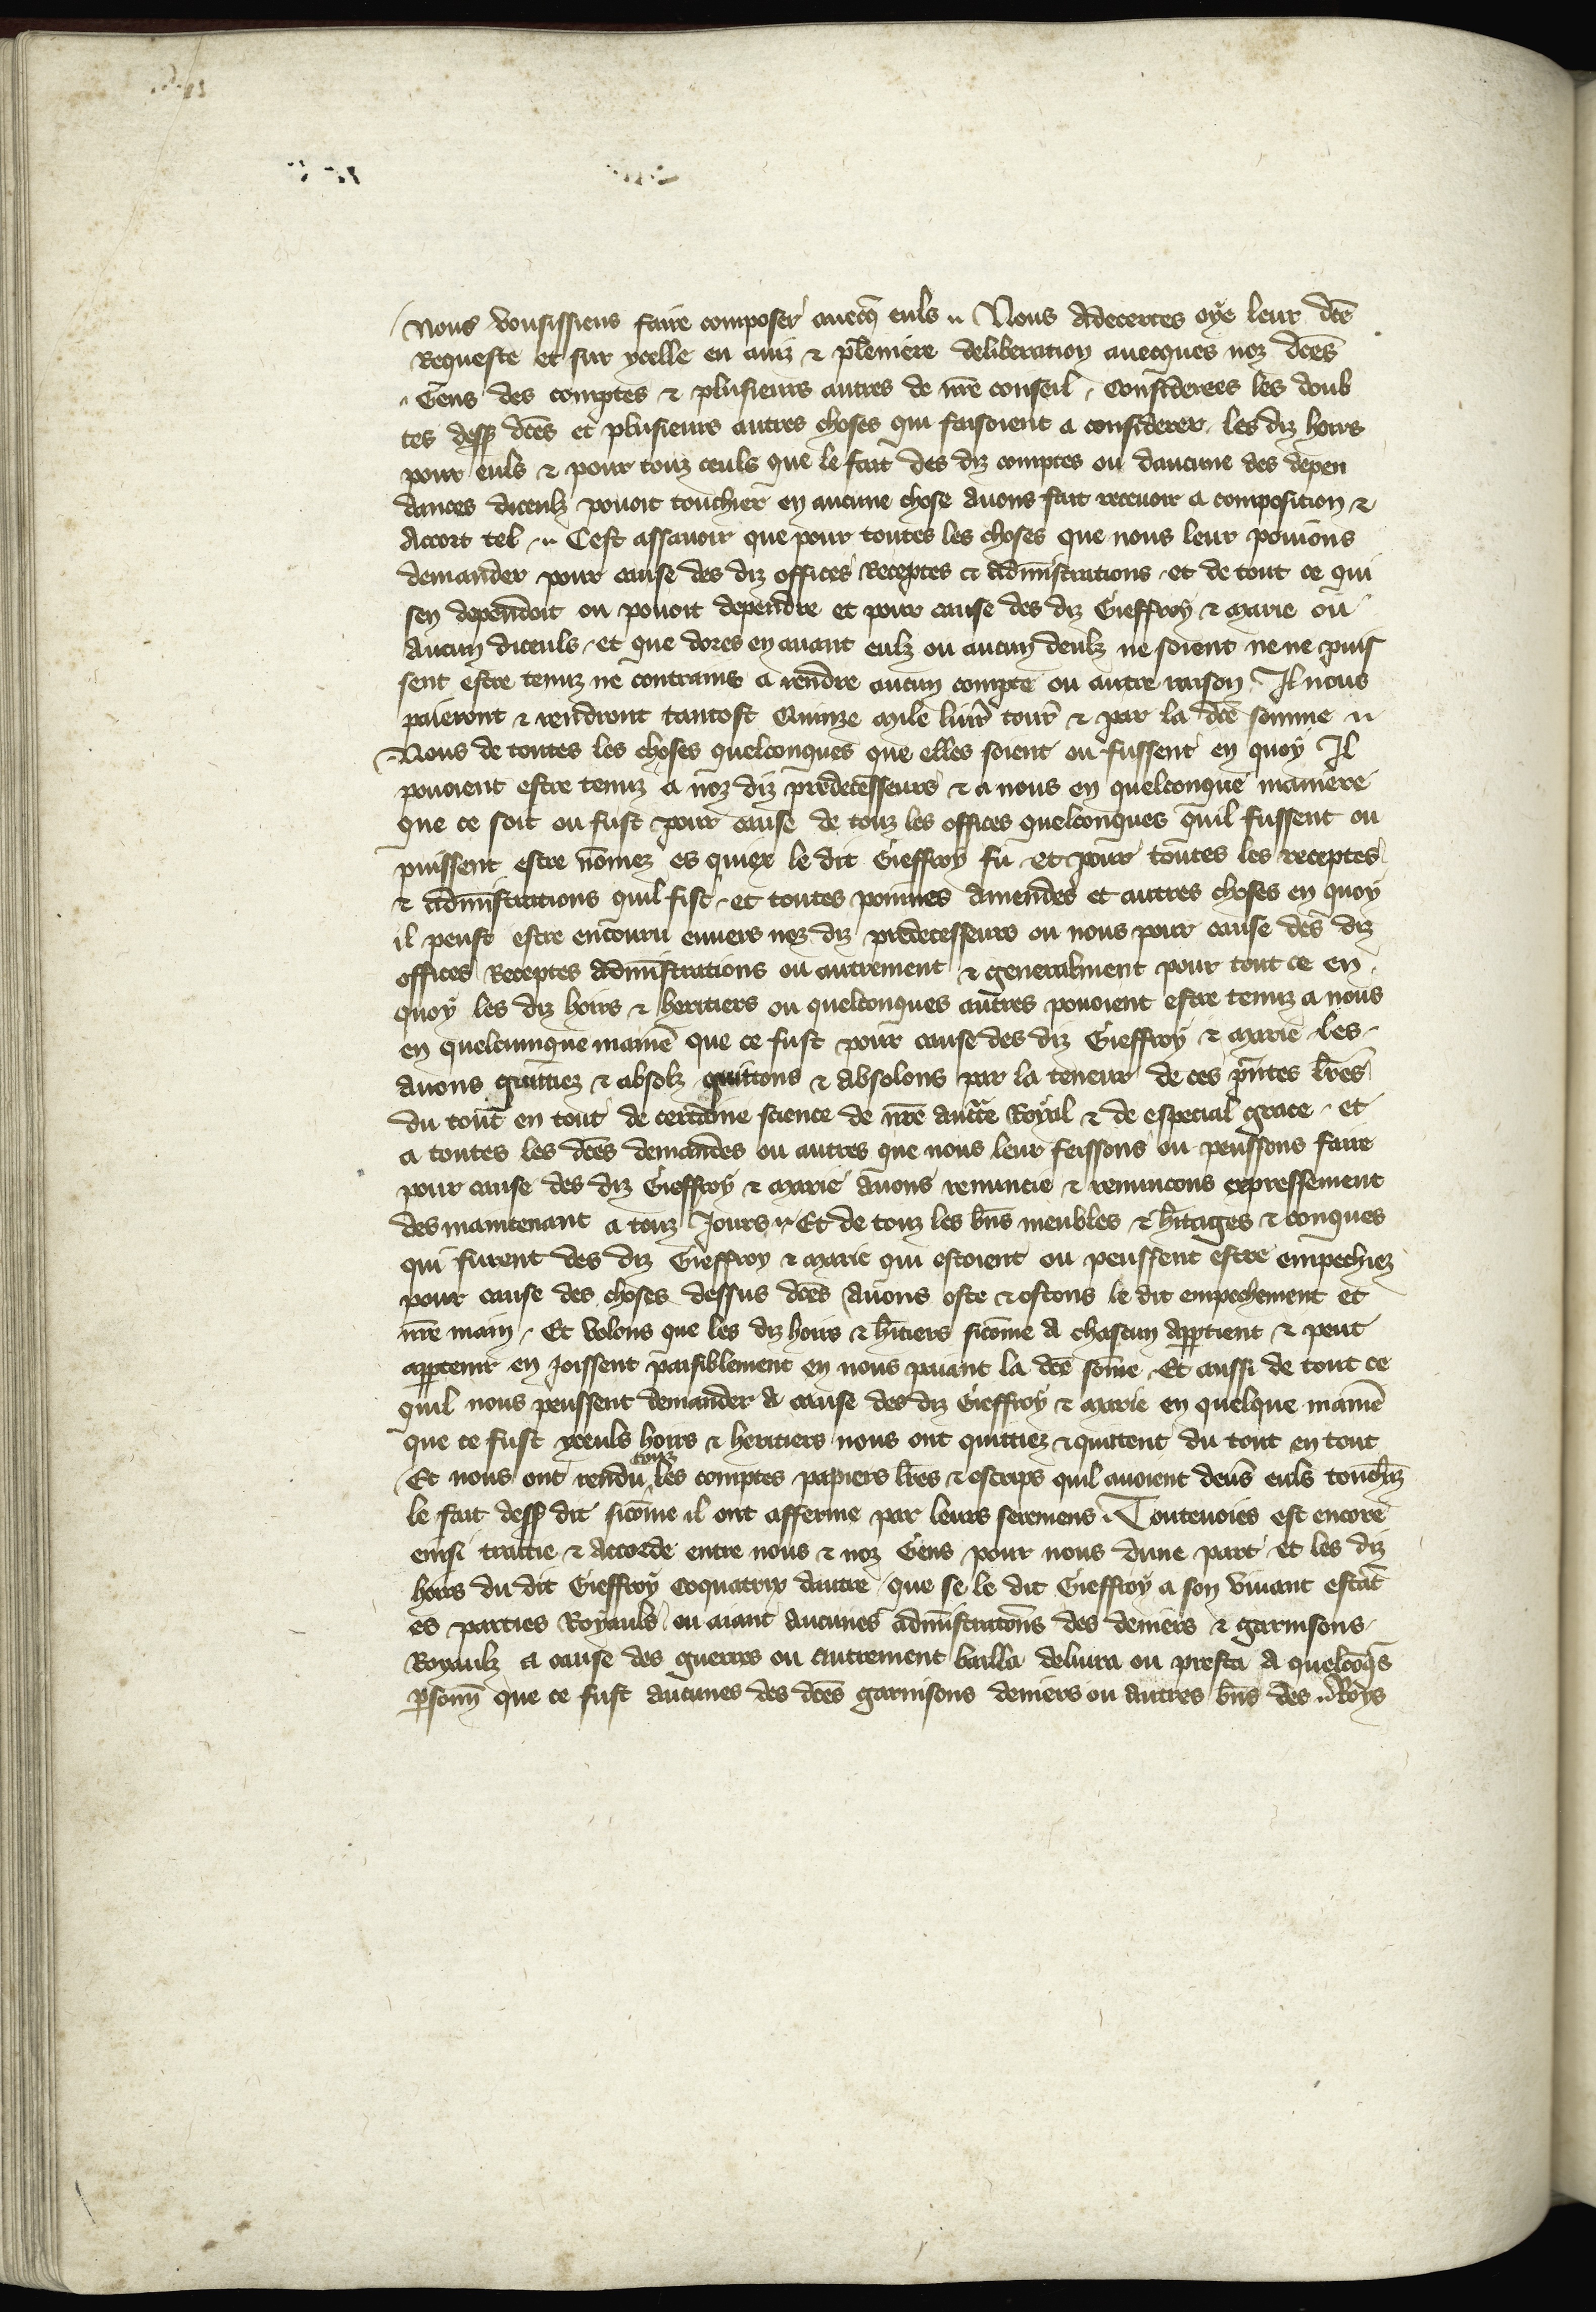 Nous vousissiens faire composer auecq̄ euls ·· Nous adecertes oye leur dc̄e
Requeste et sur ycelle eu auiz & pleniere deliberation auecques noz dc̄es
Gens des comptes & plusieurs autres de nr̄e conseil · Considerees les doub
tes dess9 dc̄es et plusieurs autres choses qui faisoient a considerer · les diz hoirs
pour euls & pour touz ceuls que le fait des diz comptes ou daucune des depen
dances diceulz pouoit touchier en aucune chose auons fait receuoir a composition &
Accort tel ·· Cest assauoir que pour toutes les choses que nous leur pouions
demander pour cause des diz offices Receptes et adm̄istrations · et de tout ce qui
sen dependoit ou pouoit dependre et pour cause des diz Gieffroy & Marie ou
Aucun diceuls · et que dores en auant eulz ou aucun deulz ne soient ne ne puis
sent estre tenuz ne contrains a rendre aucun compte ou autre raison · Il nous
paieront & rendront tantost Quinze mile liur̄ tour̄ & par la dc̄e somme ··
Nous de toutes les choses quelconques que elles soient ou fussent en quoy Il
pouoient estre tenuz a noz diz predecesseurs & a nous en quelconque maniere
que ce soit ou fust pour cause de touz les offices quelconques quil fussent ou
puissent estre nōmez es quiex le dit Gieffroy fu · et pour toutes les receptes
& adm̄istrations quil fist · et toutes poinnes amendes et autres choses en quoy
il peust estre encouru enuers noz diz predecesseurs ou nous pour cause des diz
offices Receptes adm̄istrations ou autrement & generalment pour tout ce en
quoy les diz hoirs & heritiers ou quelconques autres pouoient estre tenuz a nous
en quelcunque manie͞ que ce fust pour cause des diz Gieffroy & Marie · les
auons quittiez & absolz quittons & absolons par la teneur de ces pn̄tes lr̄es
du tout en tout de certaine science de nr̄e auctē Royal & de especial grace · et
a toutes les dc̄es demandes ou autres que nous leur feissons ou peussons faire
pour cause des diz Gieffroy & Marie auons renuncie & renuncons expressement
des maintenant a touz Jours ·· Et de touz les bn̄s meubles & h̄itages & conques
qui furent des diz Gieffroy & Marie qui estoient ou peussent estre empechiez
pour cause des choses dessus dc̄es Auons oste & ostons le dit empechement et
nr̄e main · Et volons que les diz hoirs & h̄itiers sicōme a chascun app̱tient & peut
app̱tenir en joissent paisiblement en nous paiant la dc̄e sōme · Et aussi de tout ce
quil nous peussent demander a cause des diz Gieffroy & Marie en quelque manie͞
que ce fust yceuls hoirs & heritiers nous ont quittiez & quittent du tout en tout
Et nous ont rendu touz les comptes papiers lr̄es & escrips quil auoient deu͞s euls touch̄z
le fait dess9 dit sicōme il ont afferme par leurs seremens · Toutevoies est encore
einsi traittie & accorde entre nous & noz Gens pour nous dune part et les diz
hoirs du dit Gieffroy Coquatrix dautre · que se le dit Gieffroy a son viuant estāt
es parties Royauls ou aiant aucunes adm̄istratiōns des deniers & garnisons
Royaulz a cause des guerres ou autrement bailla deliura ou presta a quelcōq̄s
p̱sonn̄ que ce fust aucunes des dc̄es garnisons deniers ou autres bn̄s des ·· Roys